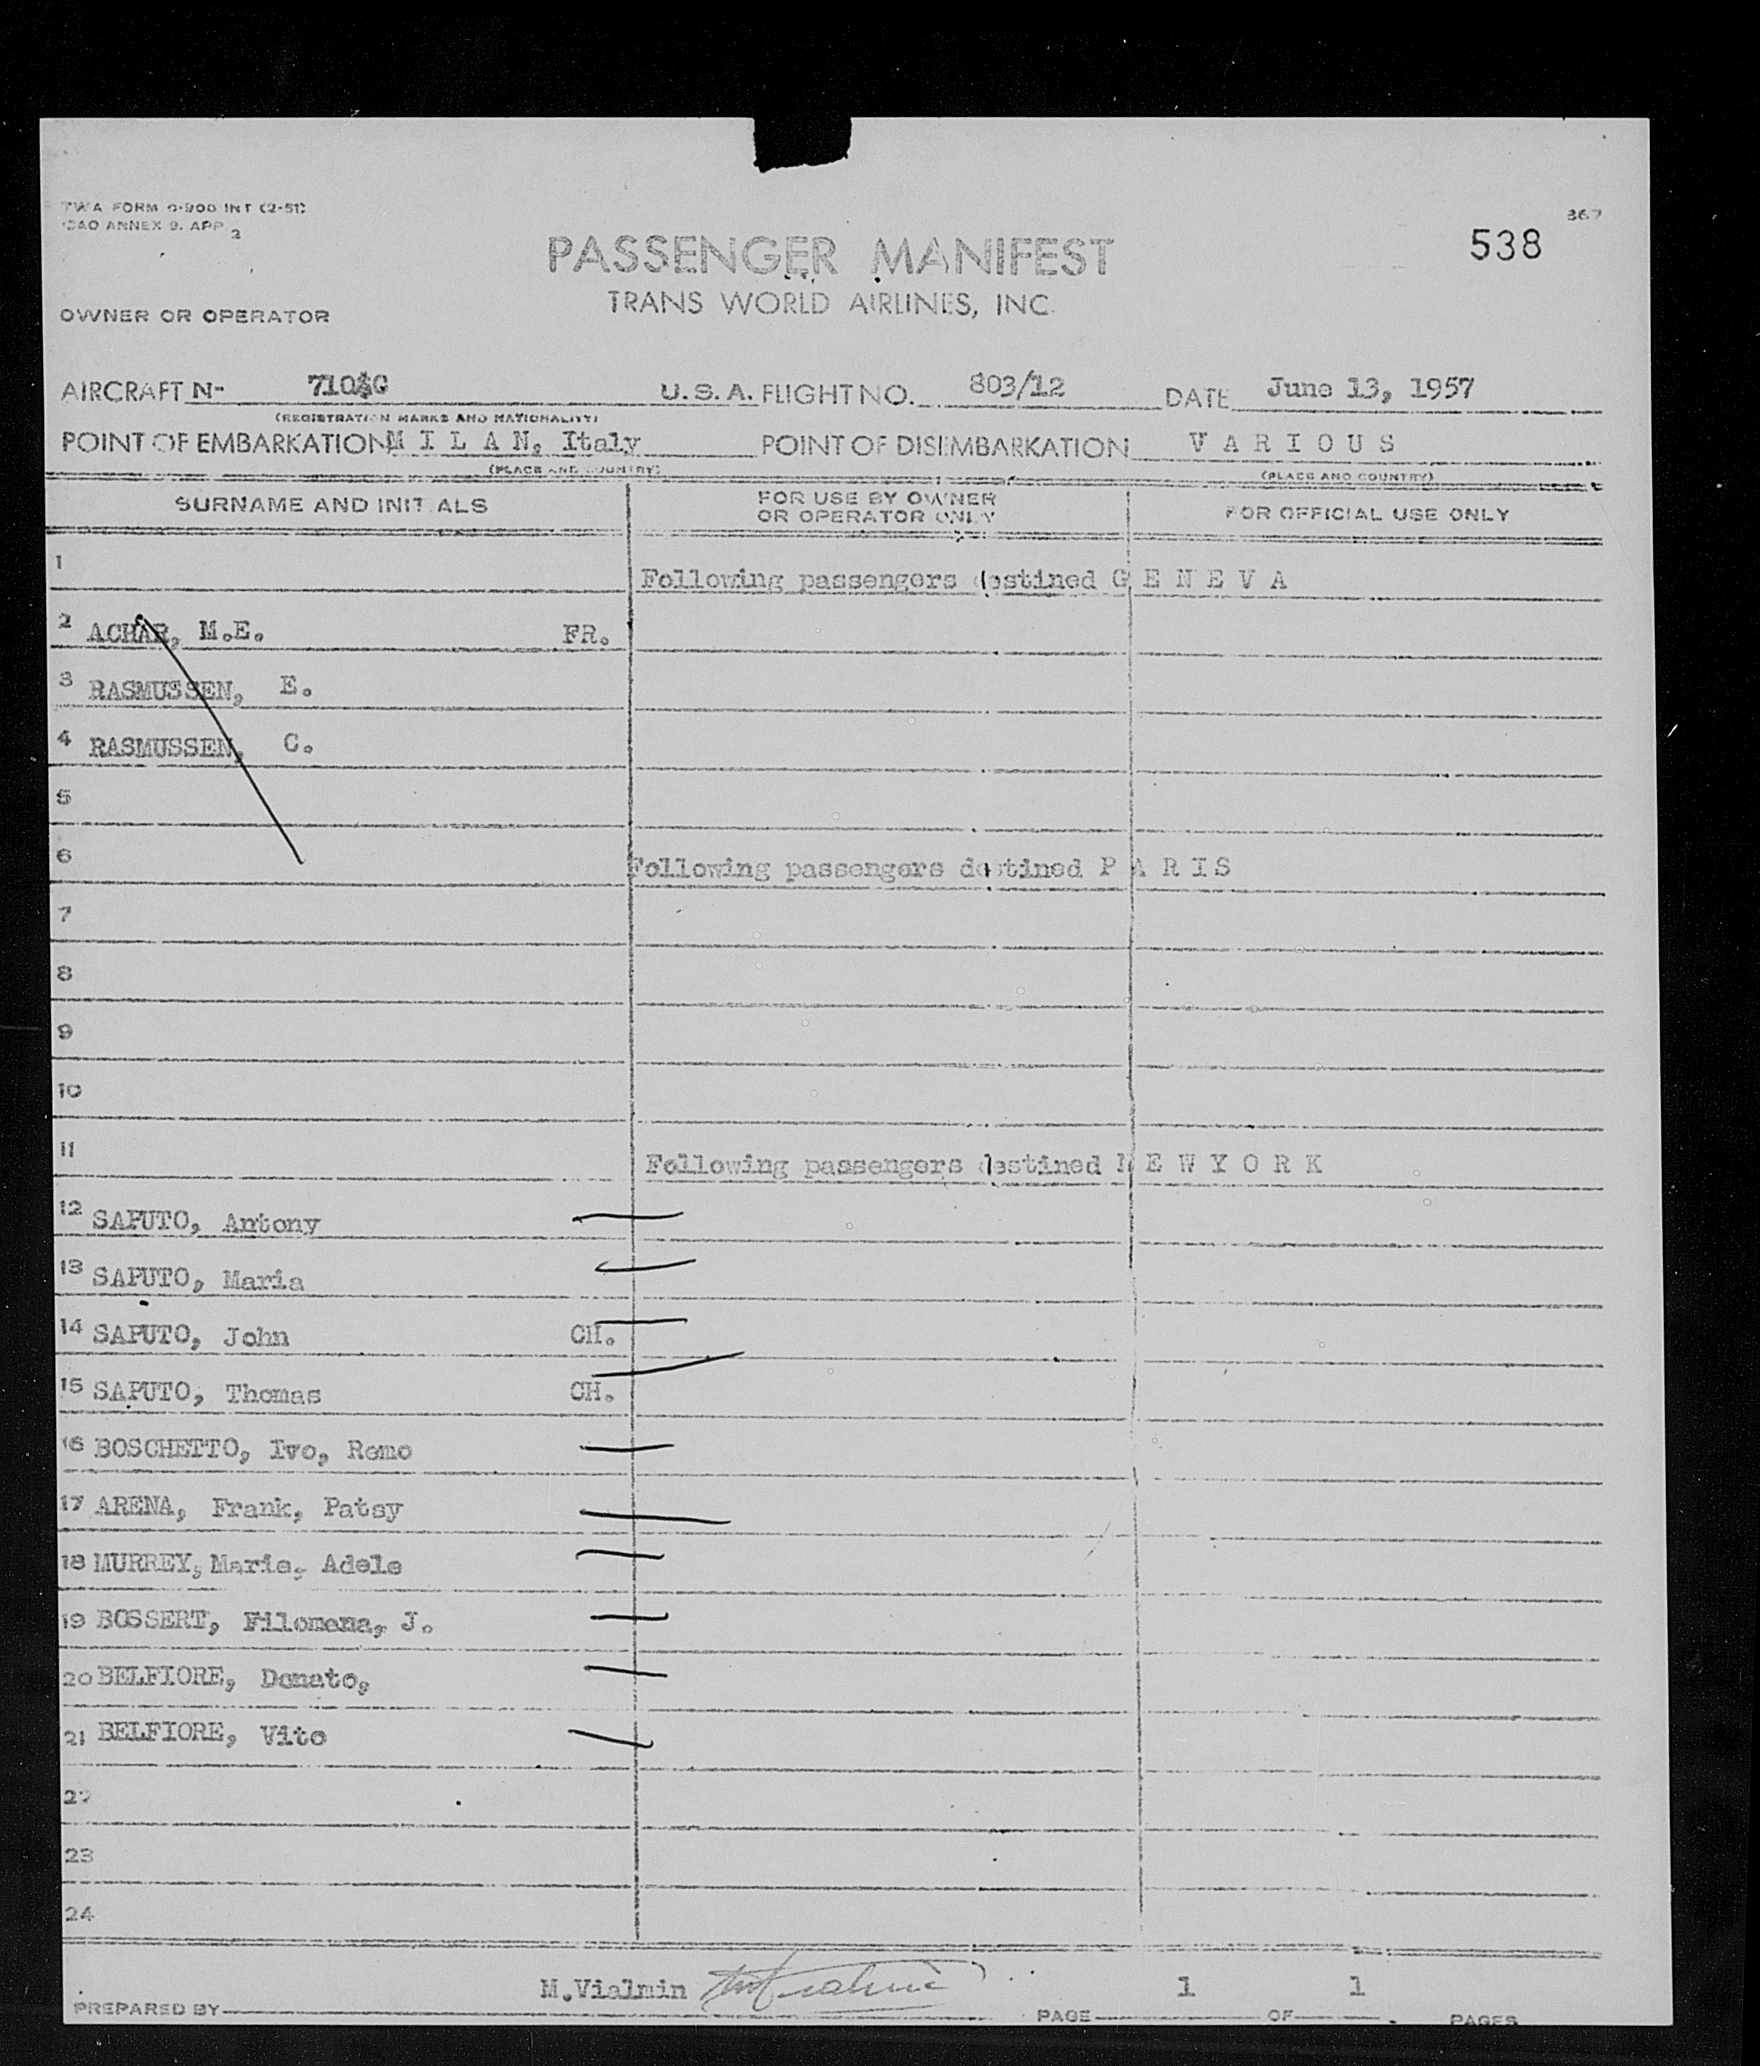 TWA FORM O-900 INT (2-51)
ICAO ANNEX 9. APP 2
367
538
PASSENGER MANIFEST
TRANS WORLD AIRLINES, INC.
OWNER OR OPERATOR
AIRCRAFT N- U.S.A. FLIGHT NO. 803/12 DATE June 13, 1957
(REGISTRATION MARKS AND NATIONALITY)
POINT OF EMBARKATION M I L A N, Italy POINT OF DISEMBARKATION V A R I O U S
(PLACE AND COUNTRY) (PLACE AND COUNTRY)
SURNAME AND INITIALS FOR USE BY OWNER OR OPERATOR ONLY FOR OFFICIAL USE ONLY
1 Following passengers destined G E N E V A
2 ACHAR, M.E. FR.
3 RASMUSSEN, E.
4 RASMUSSEN, C.
5
6 Following passengers destined P A R I S
7
8
9
10
11 Following passengers destined N E W Y O R K
12 SAPUTO, Antony
13 SAPUTO, Maria
14 SAPUTO, John CH.
15 SAPUTO, Thomas CH.
16 BOSCHETTO, Ivo, Remo
17 ARENA, Frank, Patsy
18 MURREY, Marie, Adele
19 BOSSERT, Filomena, J.
20 BELFIORE, Donato,
21 BELFIORE, Vito
22
23
24
PREPARED BY M.Vialmin PAGE 1 OF 1 PAGES